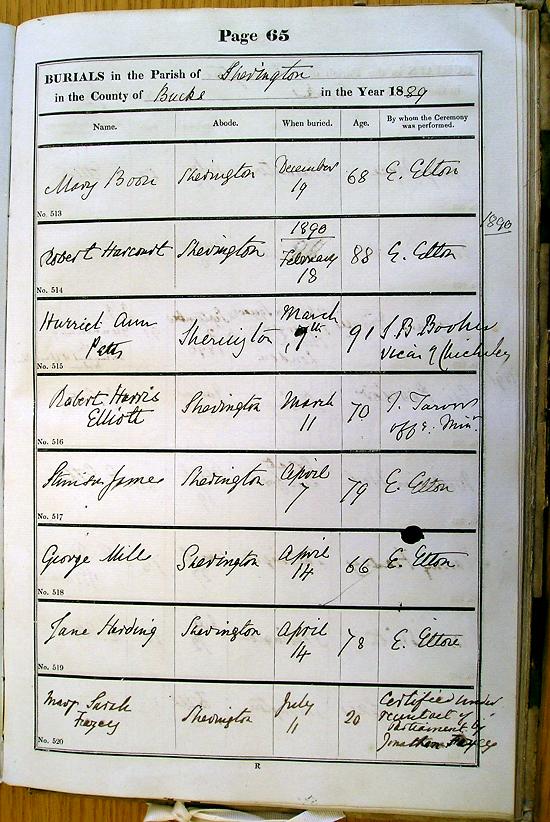 Page 65
BURIALS in the Parish of Sherington
in the County of Bucks in the Year 1889
Name. Abode. When buried. Age. By whom the Ceremony was performed.
Mary Boon Sherington December 19 68 E. Elton
No. 513
1890
1890
Robert Harcourt Sherington February 18 88 E. Elton
No. 514
Harriet Ann Sherington March 91 J B Booker
7th Vicar of Chicheley
No. 515
Robert Harris Elliott Sherington March 11 70 J. Tarver
off: Min:
No. 516
James Sherington April 7 79 E. Elton
No. 517
George Mill Sherington April 14 66 E. Elton
No. 518
Jane Harding Sherington April 14 78 E. Elton
No. 519
Mary Sarah Fazey Sherington July 11 20 Certified under
recent act of
Parliament by
Jonathan Fazey
No. 520
R